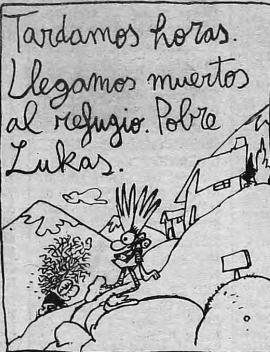 Tardamos horas.
Llegamos muertos
al refugio. Pobre
Lukas.